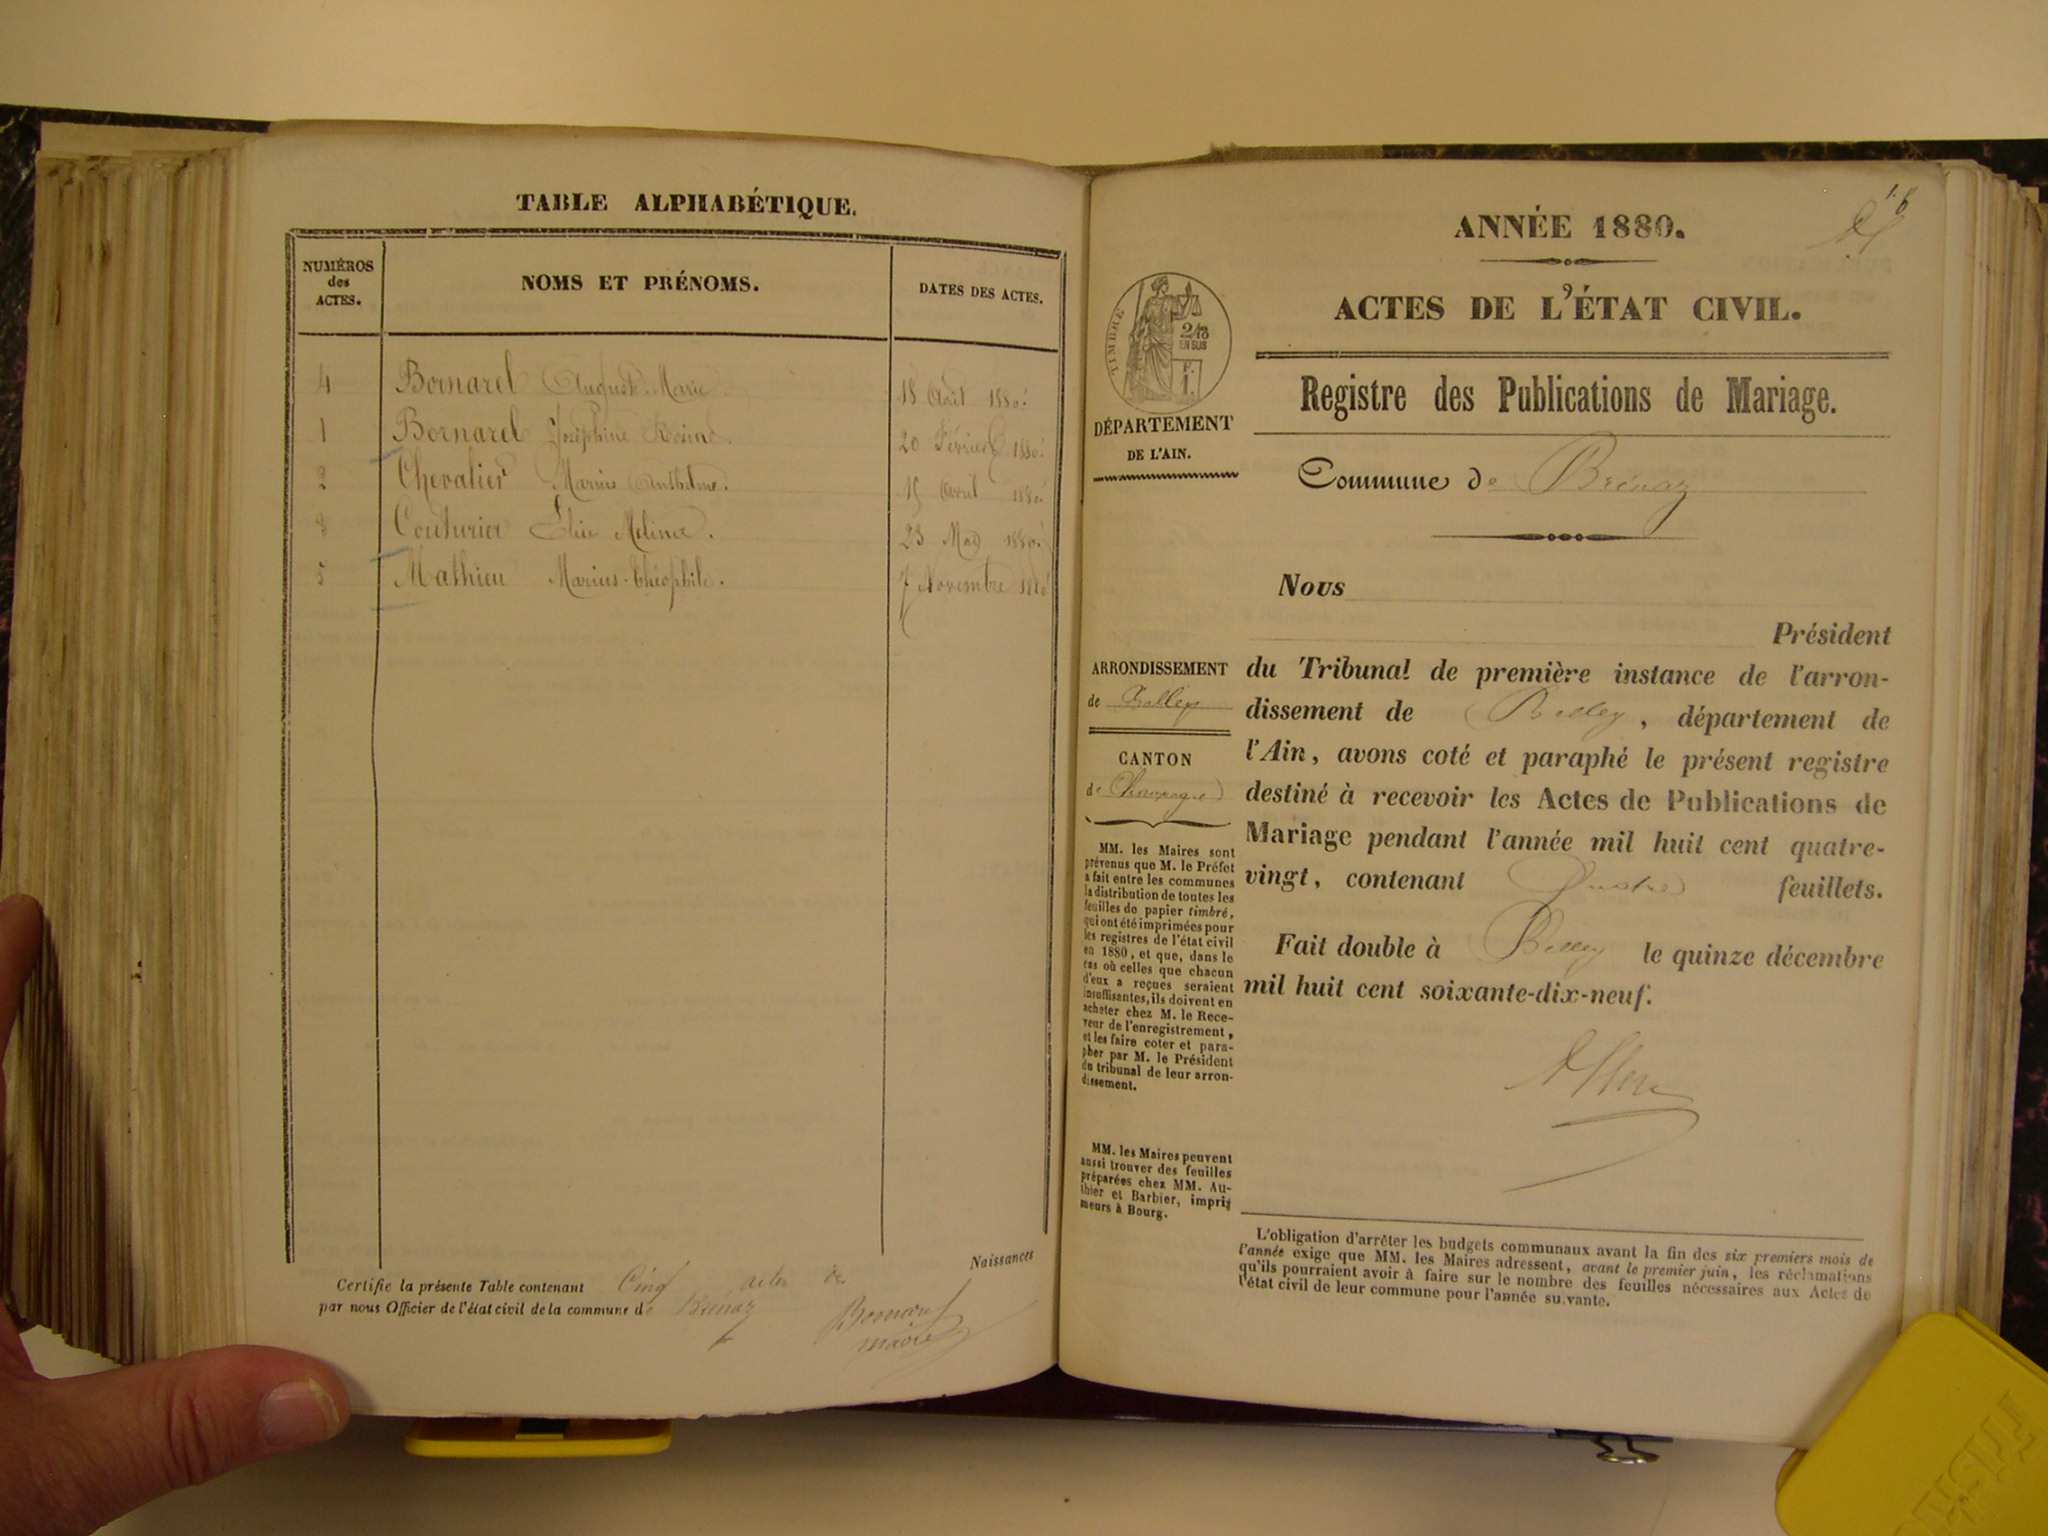 TABLE ALPHABÉTIQUE.
NUMÉROS
des
ACTES.
NOMS ET PRÉNOMS.
DATES DES ACTES.
4 Bornarel Auguste Marie 18 Août 1880.
1 Bornarel Joséphine 20 Février 1880.
2 Chevalier Marius Anthelme. 15 Avril 1880
3 Couturier Mélina. 23 Mai 1880.
5 Mathieu Marius-Théophile. 7 Novembre 1880
Naissances
Certifie la présente Table contenant Cinq actes de
par nous Officier de l'état civil de la commune de Brénaz
Bornarel
maire
ANNÉE 1880.
ACTES DE L'ÉTAT CIVIL.
TIMBRE
2/10
EN SUS
DÉPARTEMENT
DE L'AIN.
Registre des Publications de Mariage.
Commune de Brénaz
ARRONDISSEMENT
de Belley
CANTON
de Champagne
MM. les Maires sont
prévenus que M. le Préfet
a fait entre les communes
la distribution de toutes les
feuilles de papier timbré,
qui ont été imprimées pour
les registres de l'état civil
en 1880, et que, dans le
cas où celles que chacun
d'eux a reçues seraient
insuffisantes, ils doivent en
acheter chez M. le Rece-
veur de l'enregistrement,
et les faire coter et para-
pher par M. le Président
du tribunal de leur arron-
dissement.
MM. les Maires peuvent
aussi trouver des feuilles
préparées chez MM. Au-
thier et Barbier, impri
meurs à Bourg.
Nous
Président
du Tribunal de première instance de l'arron-
dissement de Belley, département de
l'Ain, avons coté et paraphé le présent registre
destiné à recevoir les Actes de Publications de
Mariage pendant l'année mil huit cent quatre-
vingt, contenant Quatre feuillets.
Fait double à Belley le quinze décembre
mil huit cent soixante-dix-neuf.
L'obligation d'arrêter les budgets communaux avant la fin des six premiers mois de
l'année exige que MM. les Maires adressent, avant le premier juin, les réclamations
qu'ils pourraient avoir à faire sur le nombre des feuilles nécessaires aux Actes de
l'état civil de leur commune pour l'année suivante.